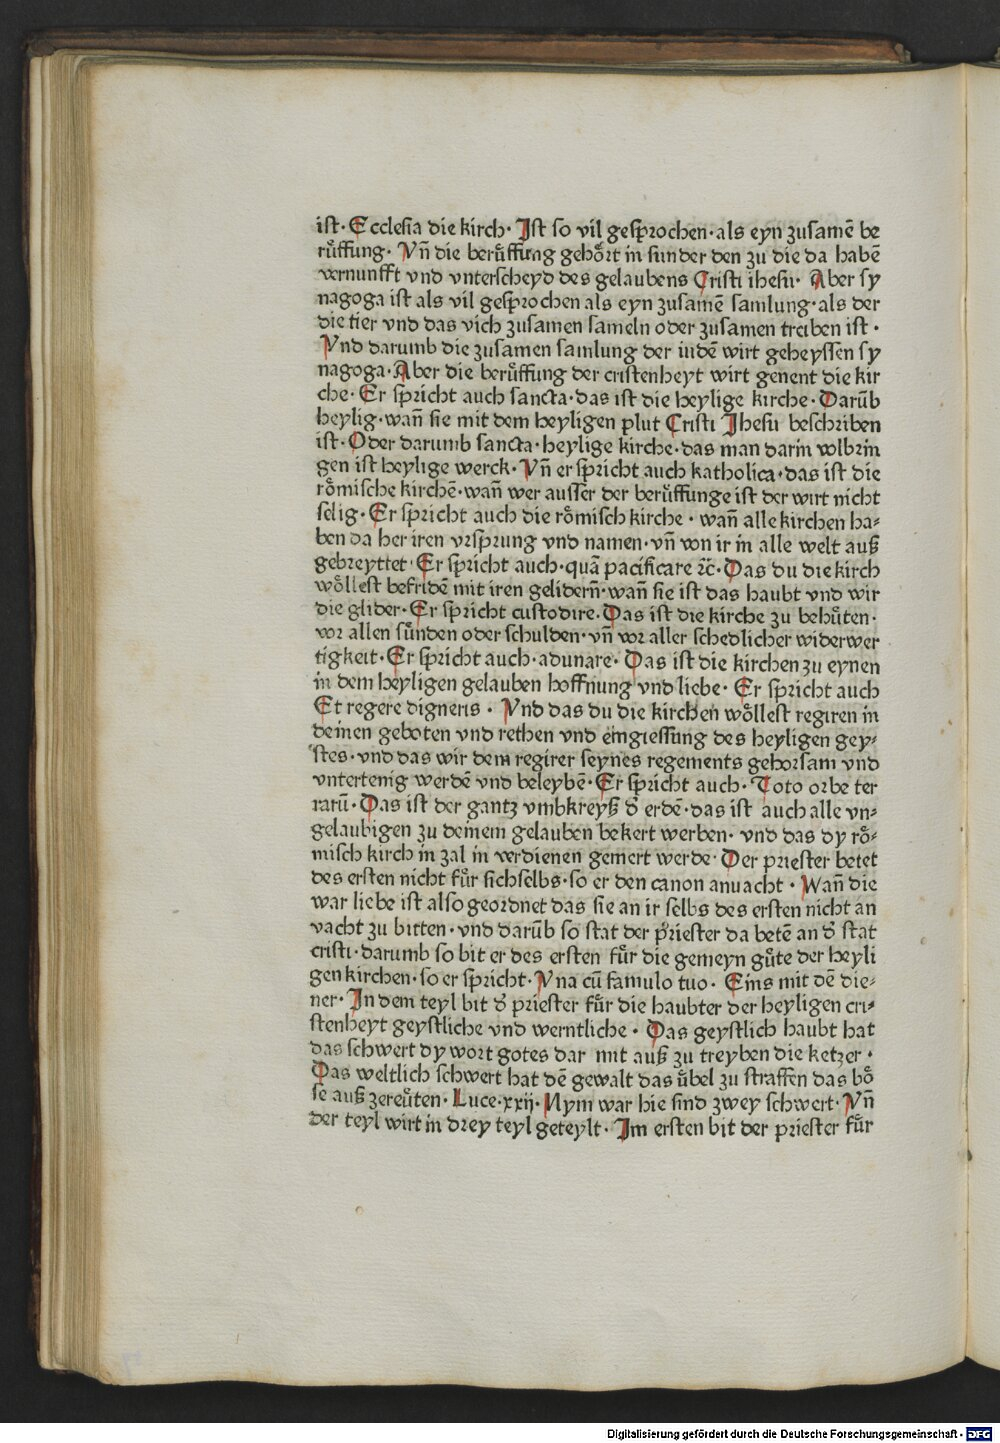 ist· Ecclesia die kirch· Ist so vil gesprochen·als eyn zusamē be
růffung· Vñ die berůffung gehoͤrt in sunder den zu die da habē
vernunfft vnd vnterscheyd des gelaubens Cristi ihesu· Aber sy
nagoga ist als vil gesprochen als eyn zusamē samlung·als der
die tier vnd das vich zusamen sameln oder zusamen treiben ist·
Vnd darumb die zusamen samlung der iudē wirt geheyssen sy
nagoga·Aber die berůffung der cristenheyt wirt genent die kir
che· Er spricht auch sancta·das ist die heylige kirche·Darūb
heylig·wañ sie mit dem heyligen plut Cristi Jhesu beschriben
ist·Oder darumb sancta·heylige kirche·das man darin volbrin
gen ist heylige werck·Vñ er spricht auch katholica·das ist die
roͤmische kirchē·wañ wer ausser der berůffunge ist der wirt nicht
selig·Er spricht auch die roͤmisch kirche·wañ alle kirchen ha⸗
ben da her iren vrsprung vnd namen·vñ von ir in alle welt auß
gebreyttet·Er spricht auch·quā pacificare ⁊c̄·Das du die kirch
woͤllest befridē mit iren geliderñ·wañ sie ist das haubt vnd wir
die glider·Er spricht custodire·Das ist die kirche zu behůten·
vor allen sůnden oder schulden·vñ vor aller schedlicher widerwer
tigkeit·Er spricht auch·adunare·Das ist die kirchen zu eynen
in dem heyligen gelauben hoffnung vnd liebe·Er spricht auch
Et regere digneris·Vnd das du die kirchen woͤllest regiren in
deinen geboten vnd rethen vnd eingiessung des heyligen gey⸗
stes·vnd das wir dem regirer seynes regements gehorsam vnd
vntertenig werdē vnd beleybē·Er spricht auch·Toto orbe ter
rarū·Das ist der gantz vmbkreyß d̕ erdē·das ist auch alle vn⸗
gelaubigen zu deinem gelauben bekert werben·vnd das dy roͤ⸗
misch kirch in zal in verdienen gemert werde·Der priester betet
des ersten nicht fůr sichselbs·so er den canon anuacht·Wañ die
war liebe ist also geordnet das sie an ir selbs des ersten nicht an
vacht zu bitten·vnd darūb so stat der priester da betē an d̕ stat
cristi·darumb so bit er des ersten fůr die gemeyn gůte der heyli
gen kirchen·so er spricht·Vna cū famulo tuo·Eins mit dē die⸗
ner·In dem teyl bit d̕ priester fůr die haubter der heyligen cri⸗
stenheyt geystliche vnd werntliche·Das geystlich haubt hat
das schwert dy wort gotes dar mit auß zu treyben die ketzer·
Das weltlich schwert hat dē gewalt das ůbel zu straffen das boͤ
se auß zereůten·Luce·xxij·Nym war hie sind zwey schwert·Vñ
der teyl wirt in drey teyl geteylt·Im ersten bit der priester fůr
Digitalisierung gefördert durch die Deutsche Forschungsgemeinschaft - DFG